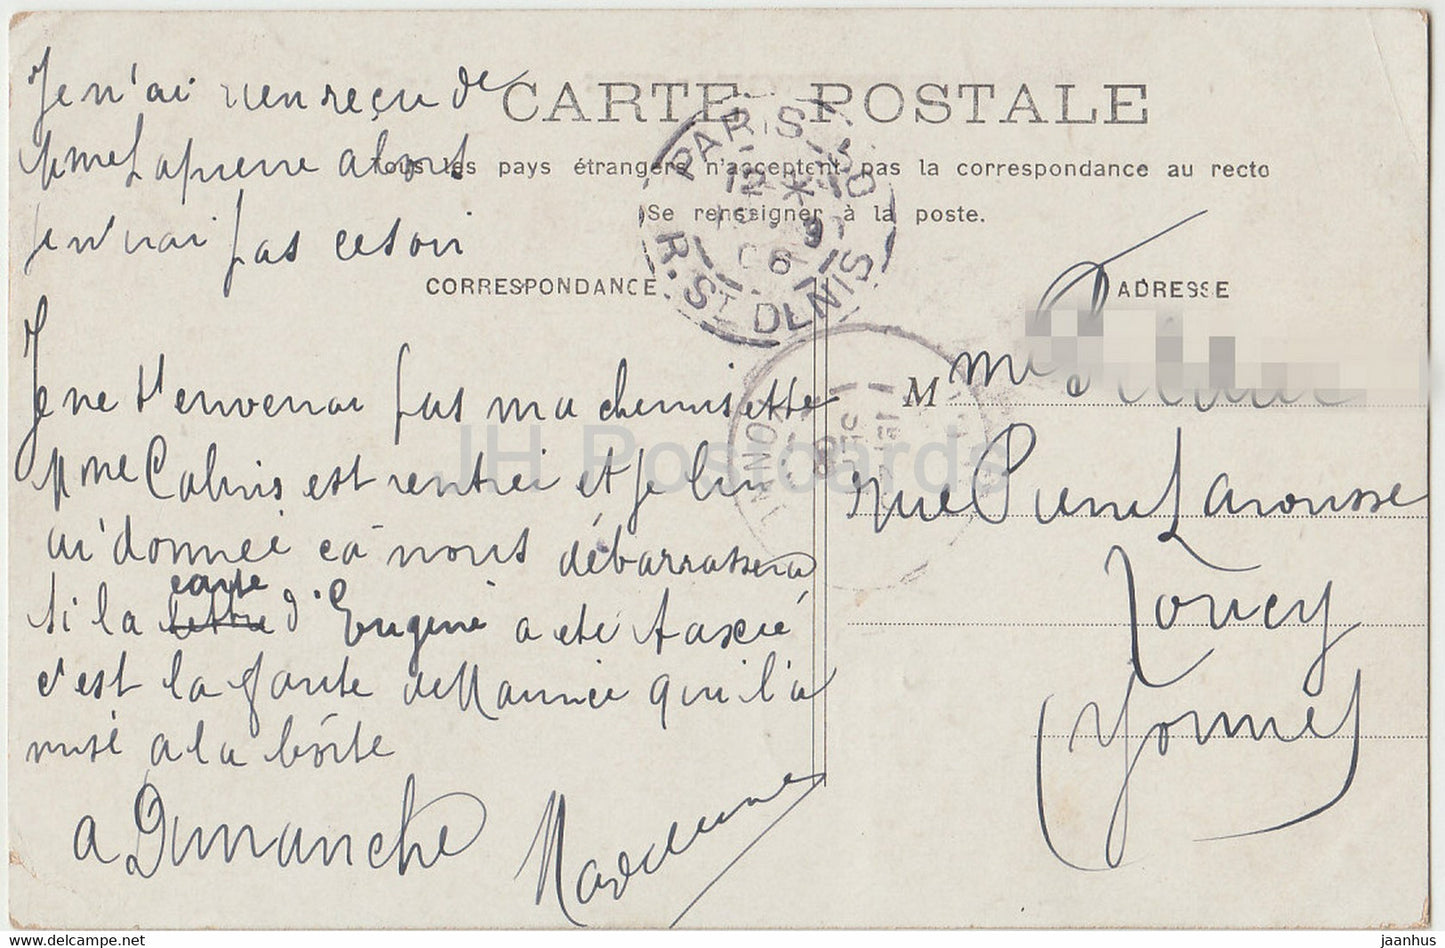 Je n'ai rien reçu de
Mme Lapierre alors
je n'irai pas ce soir
CARTE POSTALE
Tous les pays étrangers n'acceptent pas la correspondance au recto
Se renseigner à la poste.
PARIS 50
12 * 10
9
06
R. ST DENIS
CORRESPONDANCE
Je ne t'envenai pas ma chemisette
Mme Calinis est rentrei et je lui
ai donnei ça nous débarrassera
si la lettre carte d'Eugène a été taxée
c'est la faute de Maurice qui l'a
mise a la boîte
a Dimanche
Madeleine
ADRESSE
M me
rue Pierre Larousse
Toucy
(Yonne)
YONNE
JH Postcards
www.delcampe.net
jaanhus